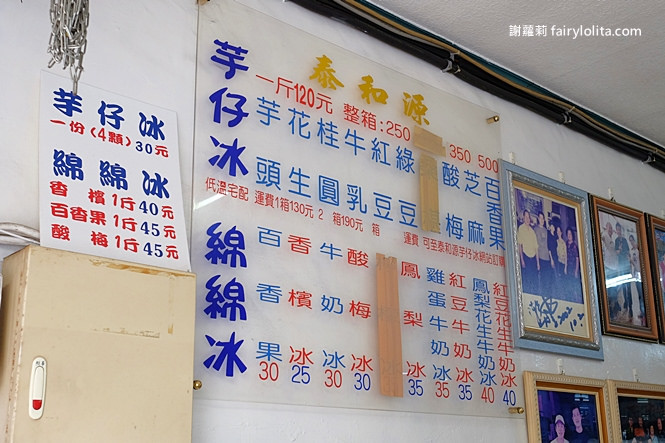 謝蘿莉 fairylolita.com
芋仔冰
一份(4顆)30元
綿綿冰
香檳1斤40元
百香果1斤45元
酸梅1斤45元
泰和源
芋仔冰
一斤120元 整箱:250 350 500
芋頭
花生
桂圓
牛乳
紅豆
綠豆
酸梅
芝麻
百香果
低溫宅配 運費1箱130元 2箱190元 箱 運費 可至泰和源芋仔冰網站訂購
綿綿冰
百香果 30
香檳冰 25
牛奶冰 30
酸梅冰 30
鳳梨冰 35
雞蛋牛奶冰 35
紅豆牛奶冰 35
鳳梨花生牛奶冰 40
紅豆花生牛奶冰 40